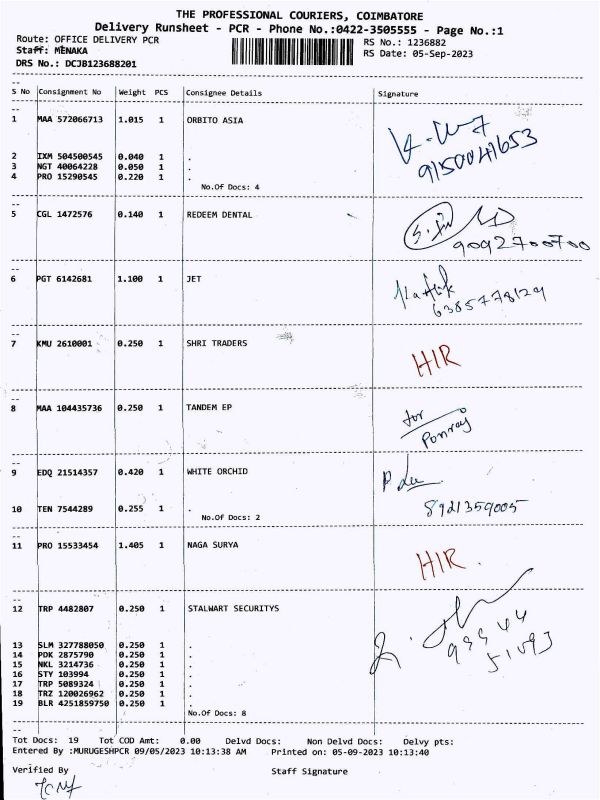 THE PROFESSIONAL COURIERS, COIMBATORE
Delivery Runsheet - PCR - Phone No.:0422-3505555 - Page No.:1
Route: OFFICE DELIVERY PCR
Staff: MENAKA
DRS No.: DCJB123688201
RS No.: 1236882
RS Date: 05-Sep-2023
S No Consignment No Weight PCS Consignee Details Signature
1 MAA 572066713 1.015 1 ORBITO ASIA
9150041653
2 IXM 504500545 0.040 1 .
3 NGT 40064228 0.050 1 .
4 PRO 15290545 0.220 1 .
No.Of Docs: 4
5 CGL 1472576 0.140 1 REDEEM DENTAL
9092700700
6 PGT 6142681 1.100 1 JET
Karthik
6385778129
7 KMU 2610001 0.250 1 SHRI TRADERS
HIR
8 MAA 104435736 0.250 1 TANDEM EP
for
Ponraj
9 EDQ 21514357 0.420 1 WHITE ORCHID
10 TEN 7544289 0.255 1 .
8921359005
No.Of Docs: 2
11 PRO 15533454 1.405 1 NAGA SURYA
HIR.
12 TRP 4482807 0.250 1 STALWART SECURITYS
99944
51093
13 SLM 327788050 0.250 1 .
14 PDK 2875790 0.250 1 .
15 NKL 3214736 0.250 1 .
16 STY 103994 0.250 1 .
17 TRP 5089324 0.250 1 .
18 TRZ 120026962 0.250 1 .
19 BLR 4251859750 0.250 1 .
No.Of Docs: 8
Tot Docs: 19 Tot COD Amt: 0.00 Delvd Docs: Non Delvd Docs: Delvy pts:
Entered By :MURUGESHPCR 09/05/2023 10:13:38 AM Printed on: 05-09-2023 10:13:40
Verified By Staff Signature